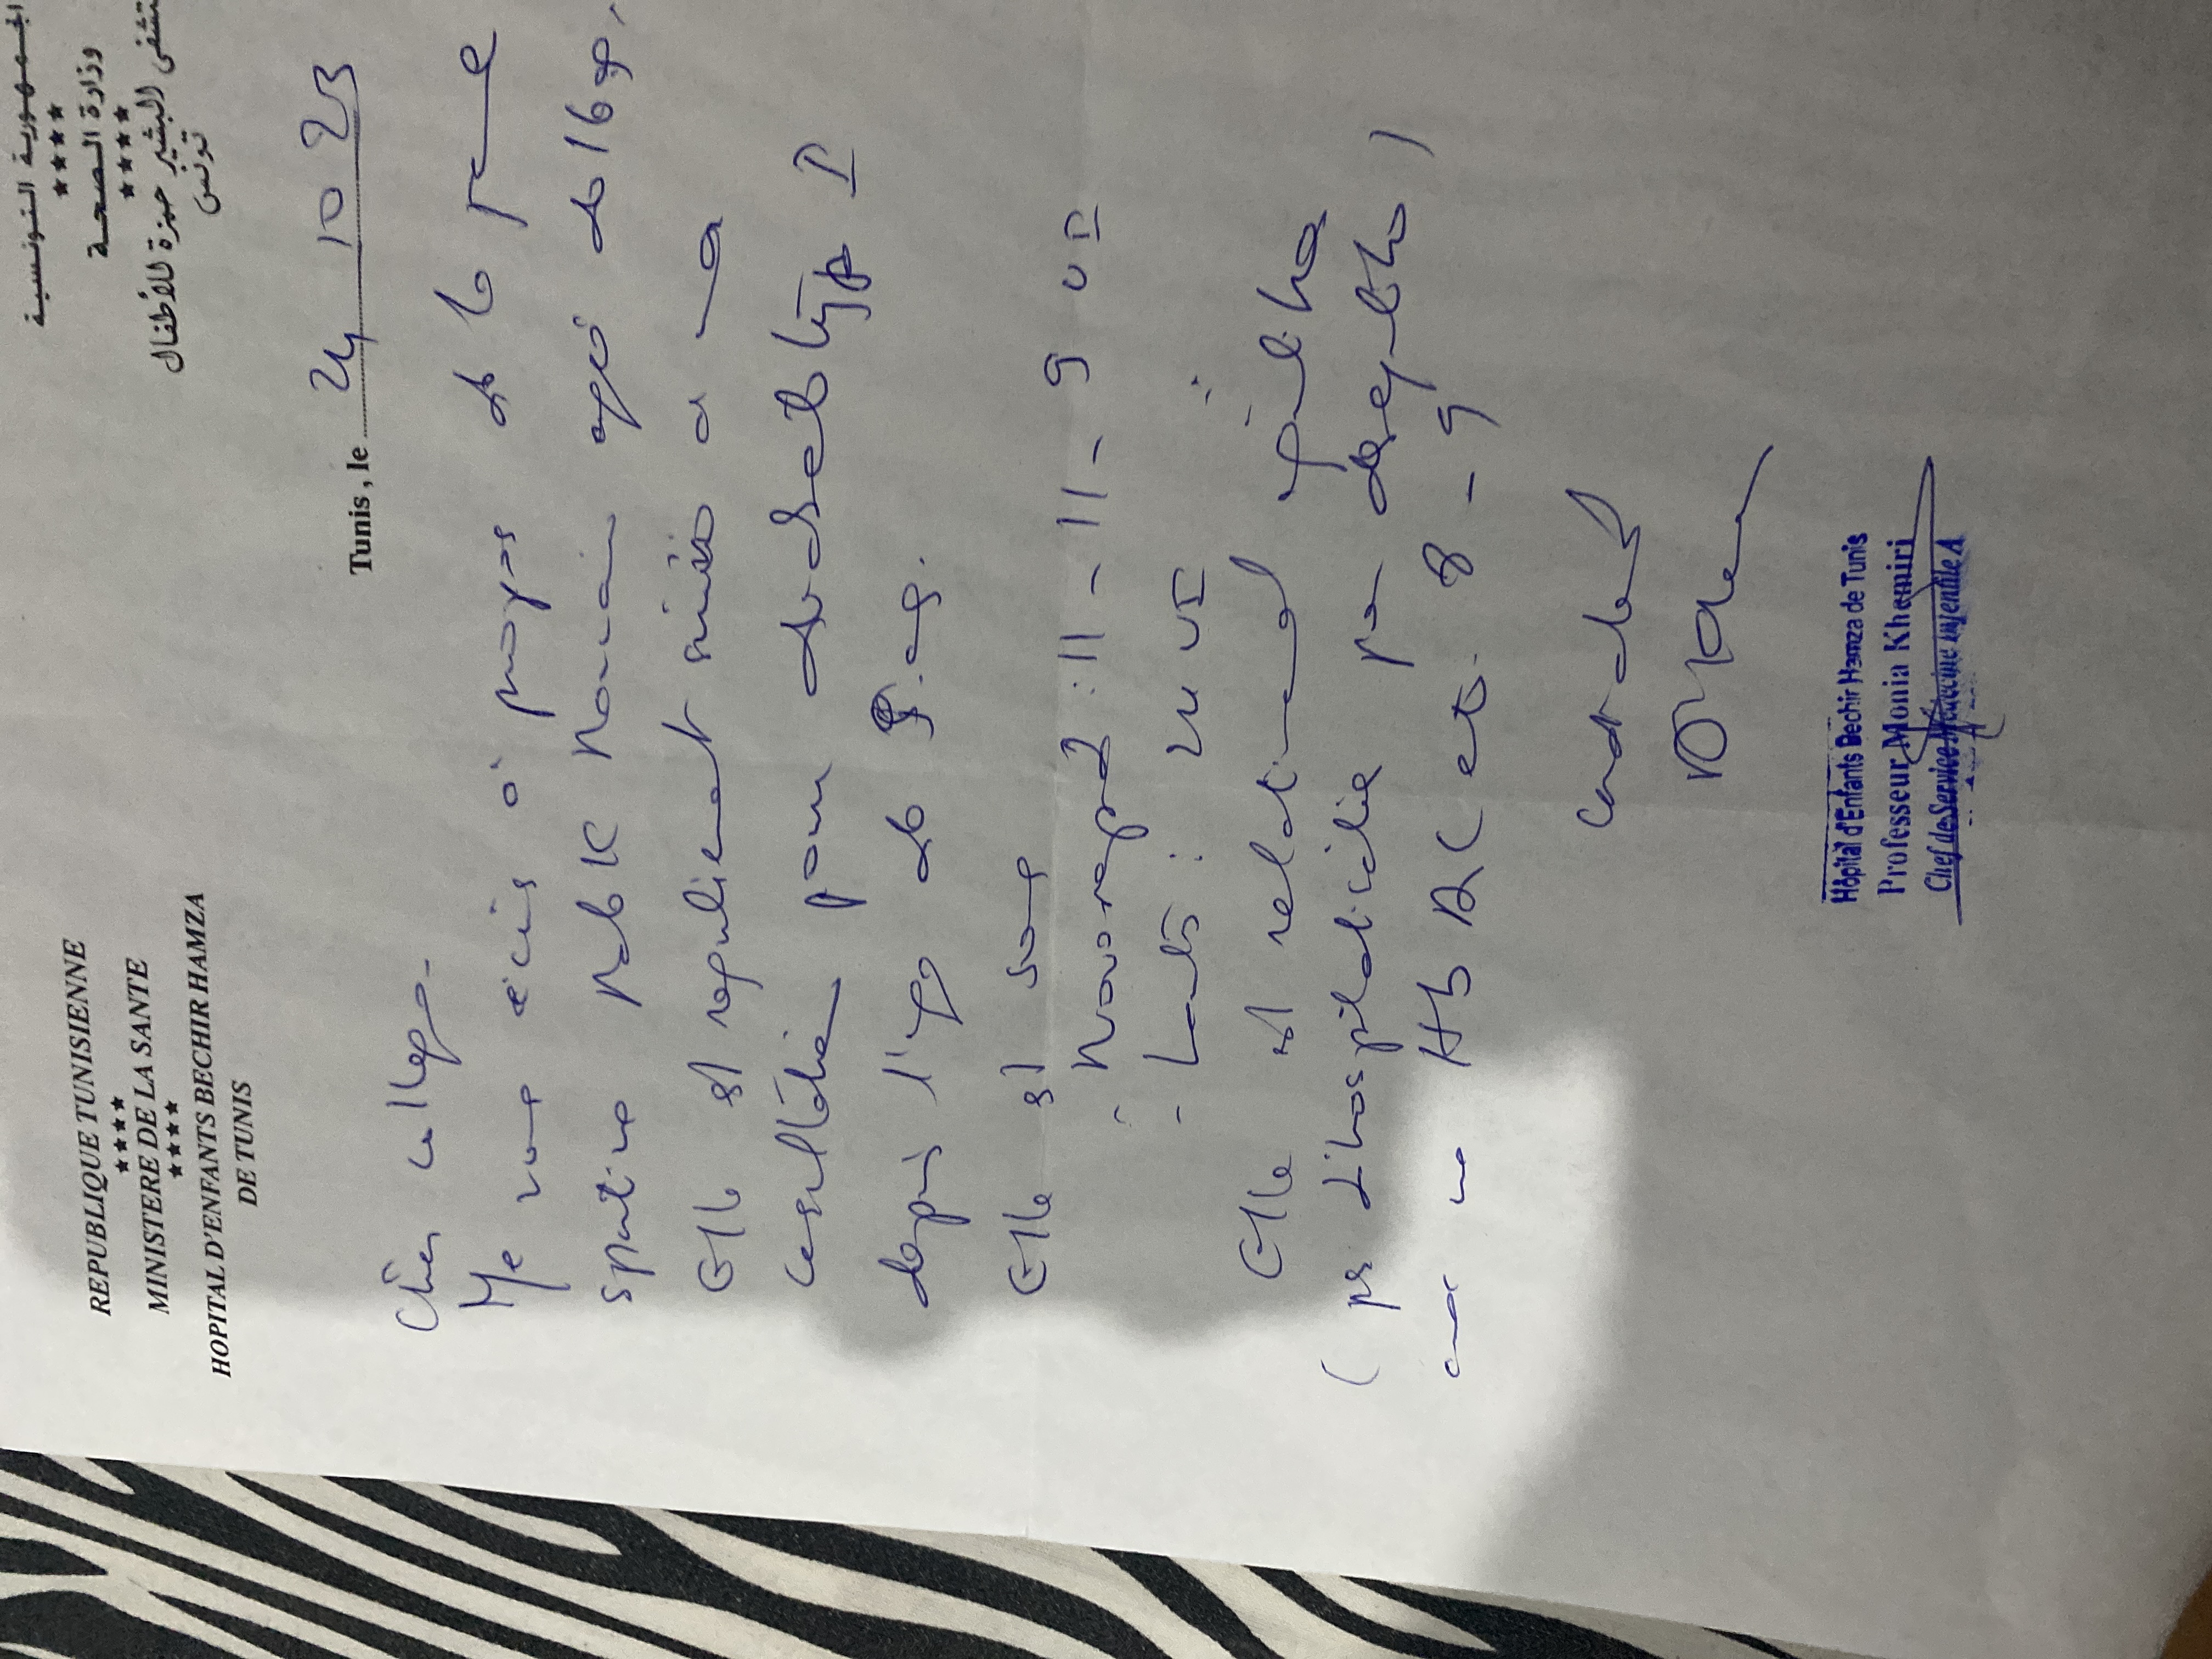 REPUBLIQUE TUNISIENNE
★★★★
MINISTERE DE LA SANTE
★★★★
HOPITAL D'ENFANTS BECHIR HAMZA
DE TUNIS
الجمهورية التونسية
★★★★
وزارة الصحة
★★★★
مستشفى البشير حمزة للأطفال
تونس
Tunis, le 24 10 23
Cher collègue
Je vous écris à propos de la jeune
agée de 16 ans
Elle est régulièrement suivie à ma
consultation pour diabète type I
depuis l'âge de 9 ans.
Elle est sous
- Novorapid : 11 - 11 - 9 UI
- Lantus : 24 UI
Elle est relativement équilibrée
(pas d'hospitalisation pour déséquilibre)
avec une HbA1C entre 8 - 9
Cordialement
Hôpital d'Enfants Bechir Hamza de Tunis
Professeur Monia Khemiri
Chef de Service Médecine infantile A